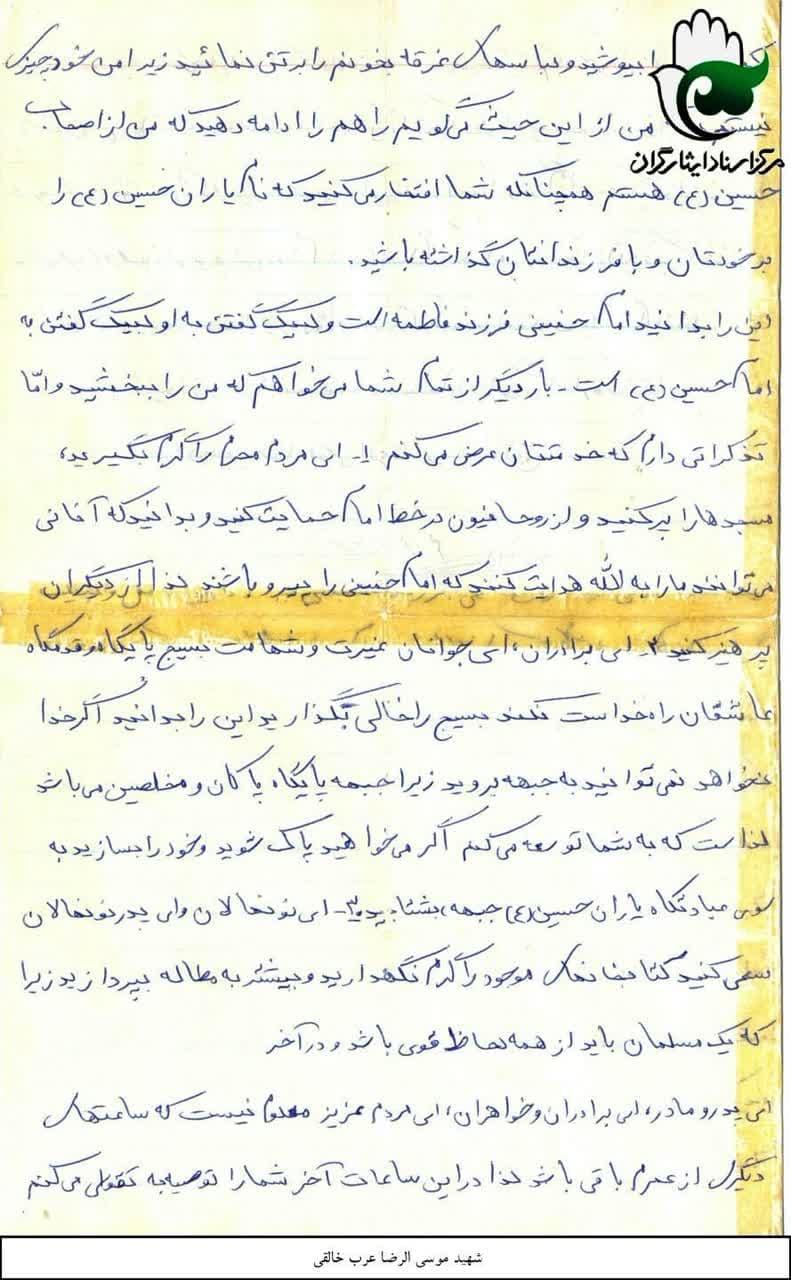 را بپوشید و لباسهای غرقه بخونم را برتن نمائید زیرا من خود چیزی
نیستم من از این حیث می‌گویم راهم را ادامه دهید که من از اصحاب
حسین (ع) هستم همچنانکه شما افتخار می‌کنید که نام یاران حسین (ع) را
بر خودتان و یا فرزندانتان گذاشته باشید.
این را بدانید امام خمینی فرزند فاطمه است و لبیک گفتن به او لبیک گفتن به
امام حسین (ع) است - بار دیگر از تمام شما می‌خواهم که من را ببخشید و امّا
تذکراتی دارم که خدمتتان عرض می‌کنم ۱- ای مردم محرم را گرم بگیرید،
مسجدها را پر کنید و از روحانیون در خط امام حمایت کنید و بدانید که آقانی
می‌توانند ما را به الله هدایت کنند که امام خمینی را پیرو باشند لذا از دیگران
پرهیز کنید ۲- ای برادران، ای جوانان غیرت و شهامت بسیج پایگاه و قدمگاه
عاشقان راه خداست نکند بسیج را خالی بگذارید و این را بدانید اگر خدا
نخواهد نمی‌توانید به جبهه بروید زیرا جبهه پایگاه پاکان و مخلصین می‌باشد
لذا است که به شما توسعه می‌کنم اگر می‌خواهید پاک شوید و خود را بسازید به
سوی عبادتگاه یاران حسین (ع) جبهه، بشتابید ۳- ای نونهالان و ای پدر نونهالان
سعی کنید کتابخانه‌های موجود را گرم نگهدارید و بیشتر به مطاله بپردازید زیرا
که یک مسلمان باید از همه لحاظ قوی باشد و در آخر
ای پدر و مادر، ای برادران و خواهران، ای مردم عزیز معلوم نیست که ساعتهای
دیگری از عمرم باقی باشد لذا در این ساعات آخر شما را توصیه به تقوای می‌کنم
مرکز اسناد ایثارگران
شهید موسی الرضا عرب خالقی